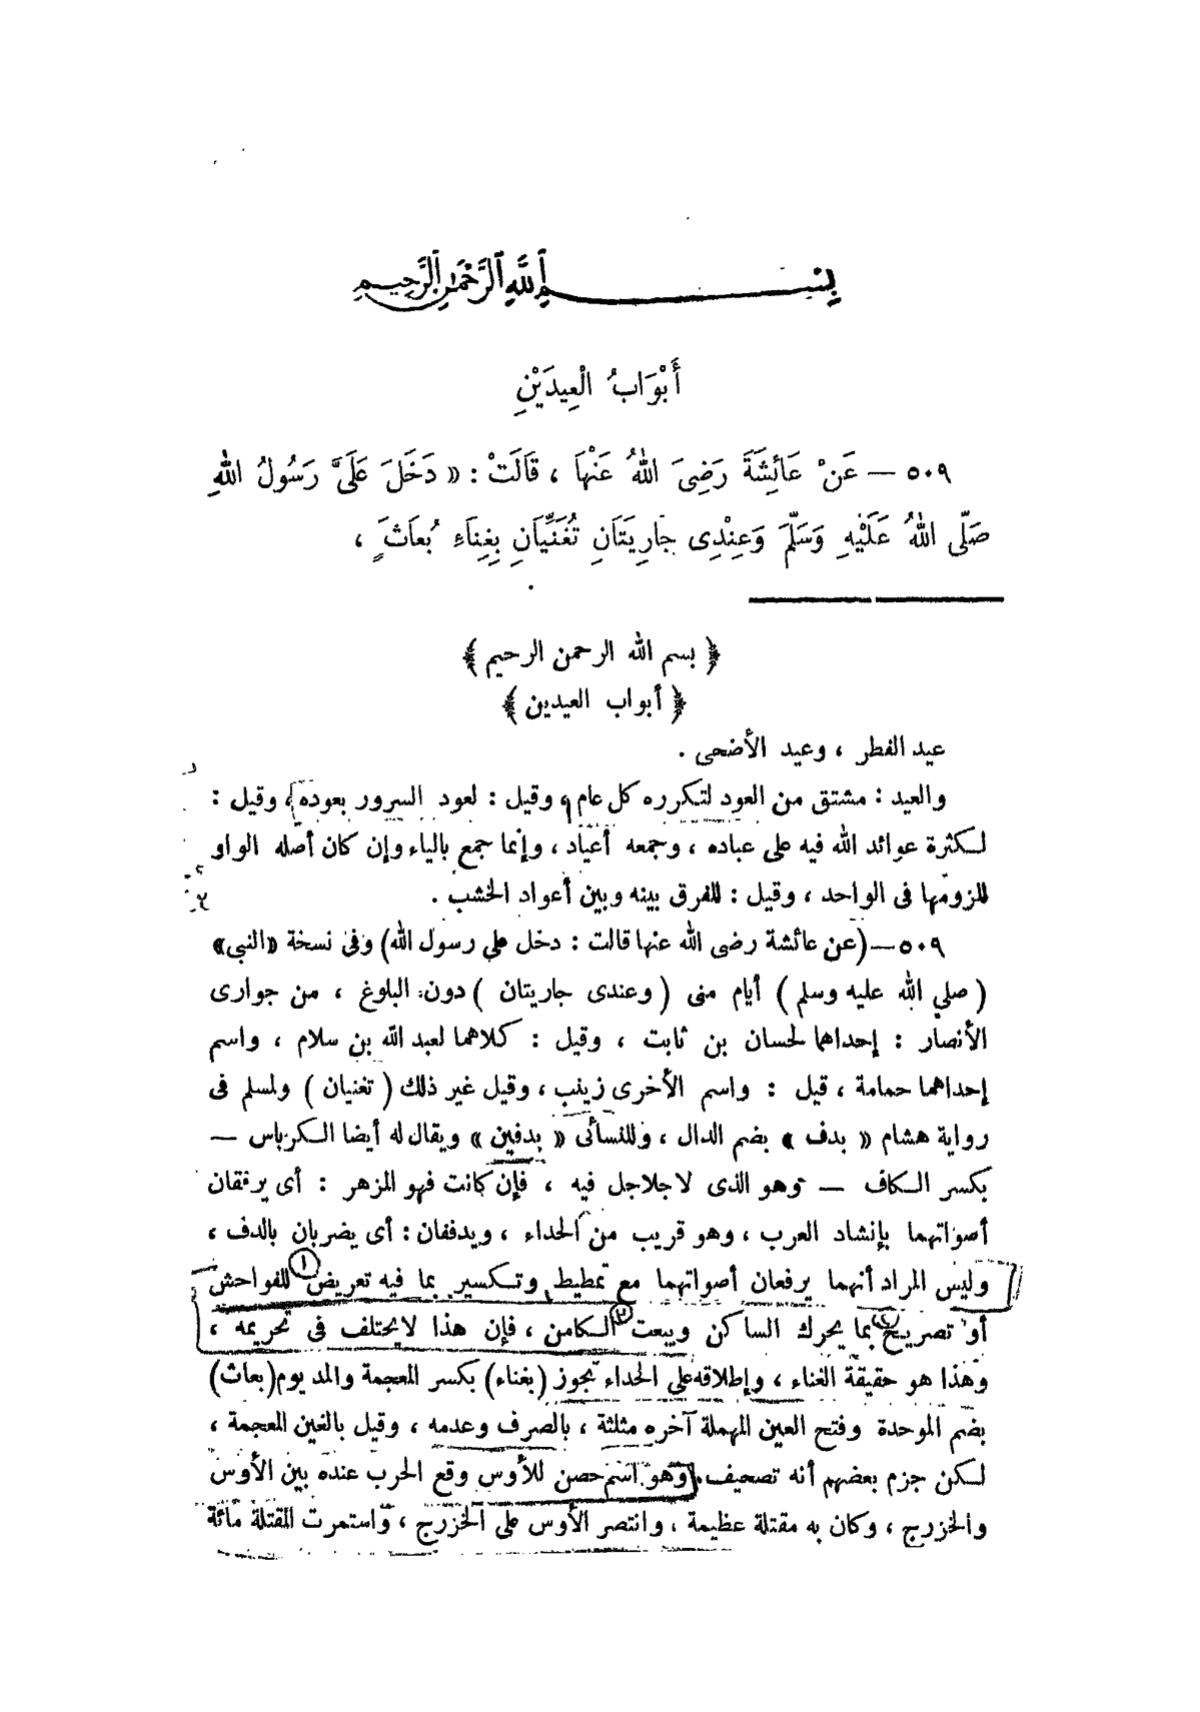 بِسْمِ اللَّهِ الرَّحْمَنِ الرَّحِيمِ
أَبْوَابُ الْعِيدَيْنِ
٥٠٩ — عَنْ عَائِشَةَ رَضِىَ اللهُ عَنْهَا ، قَالَتْ : « دَخَلَ عَلَىَّ رَسُولُ اللهِ
صَلَّى اللهُ عَلَيْهِ وَسَلَّمَ وَعِنْدِى جَارِيَتَانِ تُغَنِّيَانِ بِغِنَاءِ بُعَاثَ ٍ ،
﴿ بسم الله الرحمن الرحيم ﴾
﴿ أبواب العيدين ﴾
عيد الفطر ، وعيد الأضحى .
والعيد : مشتق من العود لتكرره كل عام ، وقيل : لعود السرور بعوده ، وقيل :
لكثرة عوائد الله فيه على عباده ، وجمعه أعياد ، وإنما جمع بالياء وإن كان أصله الواو
للزومها فى الواحد ، وقيل : للفرق بينه وبين أعواد الخشب .
٥٠٩ — (عن عائشة رضى الله عنها قالت : دخل على رسول الله) وفى نسخة «النبى»
( صلى الله عليه وسلم ) أيام منى ( وعندى جاريتان ) دون البلوغ ، من جوارى
الأنصار : إحداهما لحسان بن ثابت ، وقيل : كلاهما لعبد الله بن سلام ، واسم
إحداهما حمامة ، قيل : واسم الأخرى زينب ، وقيل غير ذلك ( تغنيان ) ولمسلم فى
رواية هشام « بدف » بضم الدال ، وللنسائى « بدفين » ويقال له أيضا الكرباس —
بكسر الكاف — وهو الذى لا جلاجل فيه ، فإن كانت فهو المزهر : أى يرفعان
أصواتهما بإنشاد العرب ، وهو قريب من الحداء ، ويدففان : أى يضربان بالدف ،
وليس المراد أنهما يرفعان أصواتهما مع تمطيط وتكسير بما فيه تعريض ١ للفواحش
أو تصريح ٢ بما يحرك الساكن ويبعث ٣ الكامن ، فإن هذا لا يختلف فى تحريمه ،
وهذا هو حقيقة الغناء ، وإطلاقه على الحداء تجوز (بغناء) بكسر المعجمة والمد يوم (بعاث)
بضم الموحدة وفتح العين المهملة آخره مثلثة ، بالصرف وعدمه ، وقيل بالغين المعجمة ،
لكن جزم بعضهم أنه تصحيف. وهو اسم حصن للأوس وقع الحرب عنده بين الأوس
والخزرج ، وكان به مقتلة عظيمة ، وانتصر الأوس على الخزرج ، واستمرت المقتلة مائة